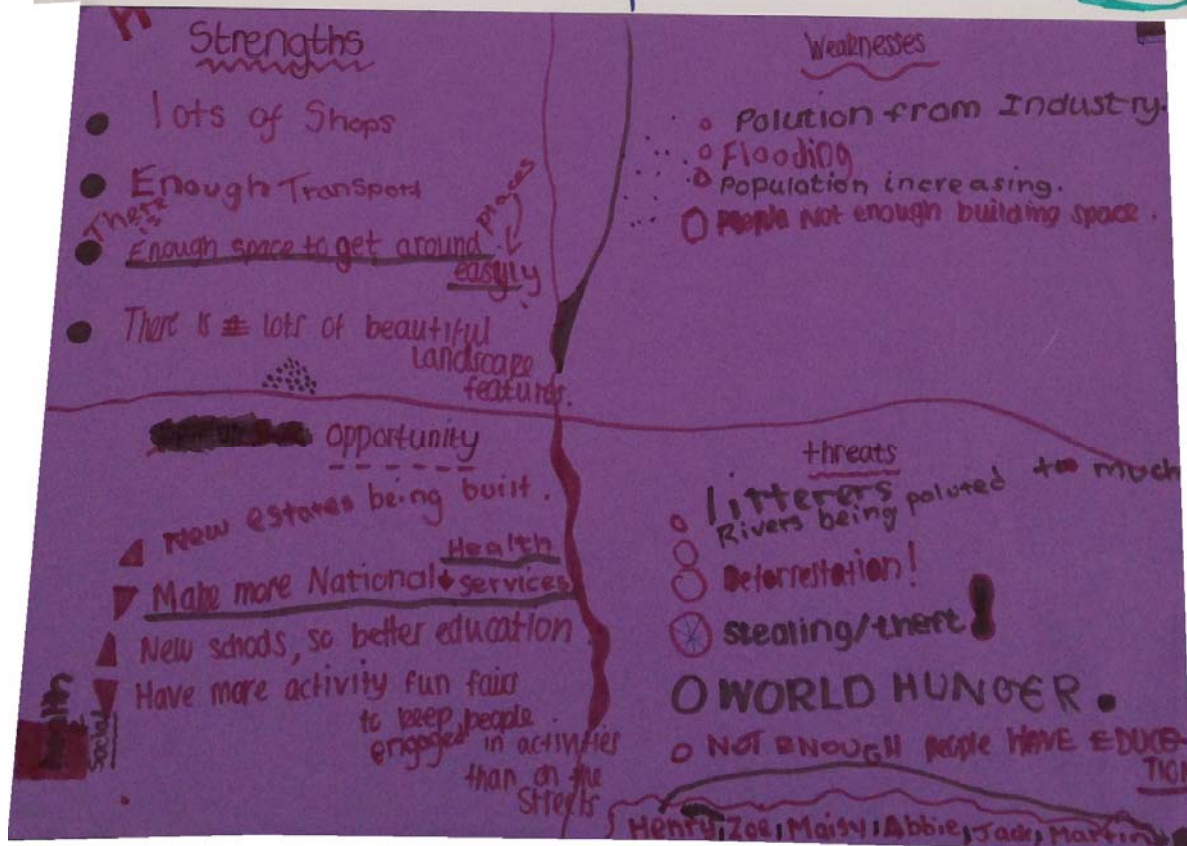 Strengths
lots of Shops
Enough Transport
There is
Enough space to get around places
easyly
There is lots of beautiful
Landscape
features.
Weaknesses
Polution from Industry.
Flooding
Population increasing.
People Not enough building space.
opportunity
New estates being built.
Health
Make more National services
New schools, so better education
Have more activity fun fairs
to keep people
engaged in activities
than on the
streets
social
threats
litterers
Rivers being poluted to much
Deforrestation!
Stealing/theft!
WORLD HUNGER.
NOT ENOUGH people HAVE EDUCE-
TION
Henry, Zoe, Maisy, Abbie, Jack, Martin